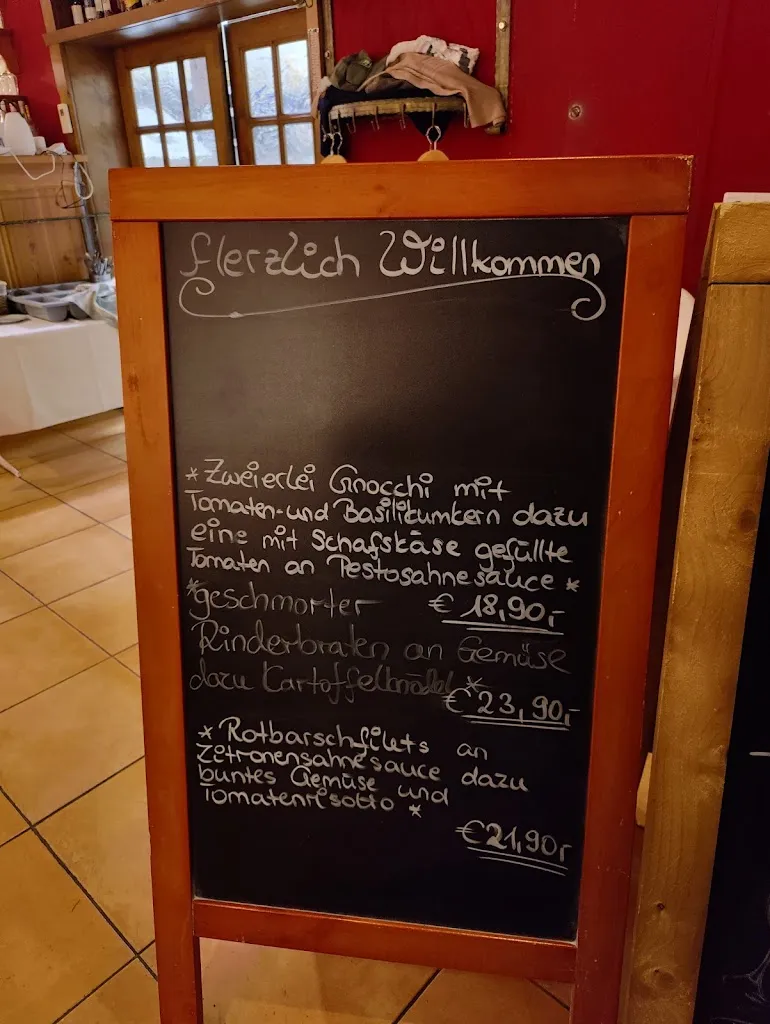 Herzlich Willkommen
*Zweierlei Gnocchi mit
Tomaten- und Basilikumkern dazu
eine mit Schafskäse gefüllte
Tomaten an Pestosahnesauce *
€ 18,90,-
*geschmorter
Rinderbraten an Gemüse
dazu Kartoffelknödel *
€ 23,90,-
* Rotbarschfilets an
Zitronensahnesauce dazu
buntes Gemüse und
Tomatenrisotto *
€21,90,-